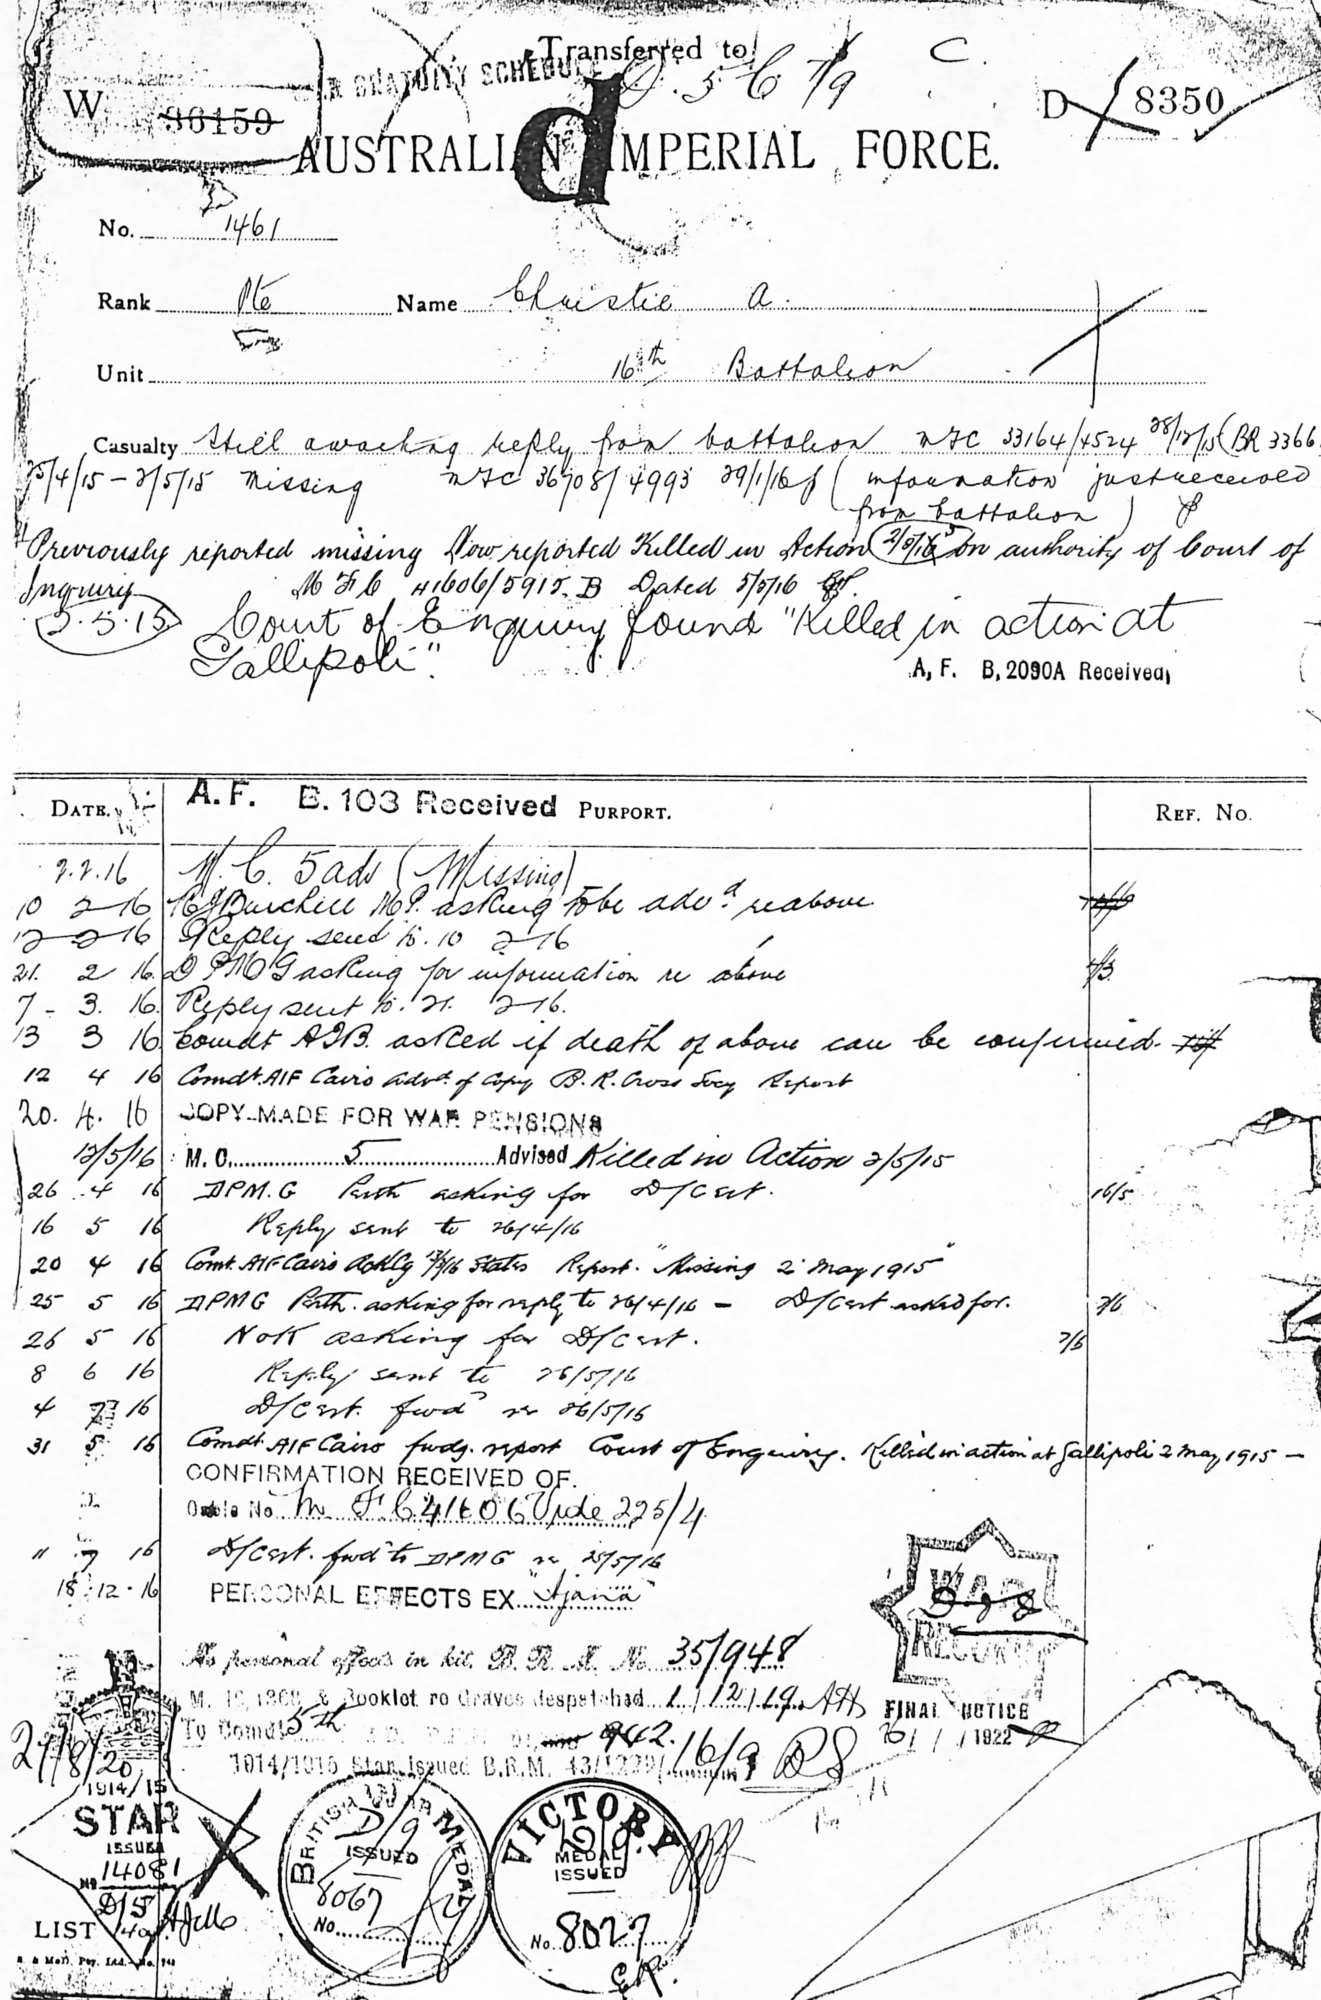 Transferred to
GRATUITY SCHEDULE
D. 5 C 7/9 C.
W 36159
D 8350
d
AUSTRALIAN IMPERIAL FORCE.
No. 1461
Rank Pte Name Christie A.
Unit 16th Battalion
Casualty Still awaiting reply from battalion MFC 33164/4524 28/12/15 (BR 3366
25/4/15 – 2/5/15 Missing MFC 36708/4993 29/1/16 (information just received
from battalion)
Previously reported missing Now reported Killed in Action 2/5/15 on authority of Court of
Inquiry M F C 41606/5915. B Dated 5/5/16
2.5.15 Court of Enquiry found "Killed in action at
Gallipoli".
A. F. B. 2090A Received
DATE. A. F. B. 103 Received PURPORT. REF. No.
2.2.16 M. C. 5 adv (Missing)
10 2 16 R J Burchell M P. asking to be advd re above
12 2 16 Reply send to. 10 2 16
21. 2 16. D P M G asking for information re above 7/3
7 - 3. 16. Reply sent to. 21. 2 16.
13 3 16 Comdt A I B. asked if death of above can be confirmed.
12 4 16 Comdt. AIF Cairo advd. of Copy B. R. Cross Socy Report
20. 4. 16 COPY MADE FOR WAR PENSIONS
12/5/16 M. C. 5 Advised Killed in Action 2/5/15
26 4 16 D P M. G Perth asking for D/Cert. 16/5
16 5 16 Reply sent to 26/4/16
20 4 16 Comt. AIF Cairo Ackg States Report. "Missing 2 May 1915"
25 5 16 D P M G Perth. asking for reply to 26/4/16 – D/Cert asked for. 7/6
26 5 16 NoK asking for D/Cert. 7/6
8 6 16 Reply sent to 26/5/16
4 7 16 D/Cert. fwd re 26/5/16
31 5 16 Comdt AIF Cairo fwdg. report Court of Enquiry. Killed in action at Gallipoli 2 May, 1915 –
CONFIRMATION RECEIVED OF.
Cable No. M F C 41606 Vide 225/4
11 7 16 D/Cert. fwd to D P M G re 25/5/16
18.12.16 PERSONAL EFFECTS EX "Ajana"
No personal effects in kit. B. R. M. No. 35/948
M. & Booklet re Graves despatched 1/12/19. AH
To Comdt 5th 942.
1914/1915 Star Issued B.R.M. 43/1229/ 16/9
WAR
RECORDS
FINAL NOTICE
1922
21/8/20
1914/15
STAR
ISSUED
No 14081
D/5
LIST
BRITISH WAR MEDAL
D/9
ISSUED
8067
No.
VICTORY
MEDAL
ISSUED
No. 8027